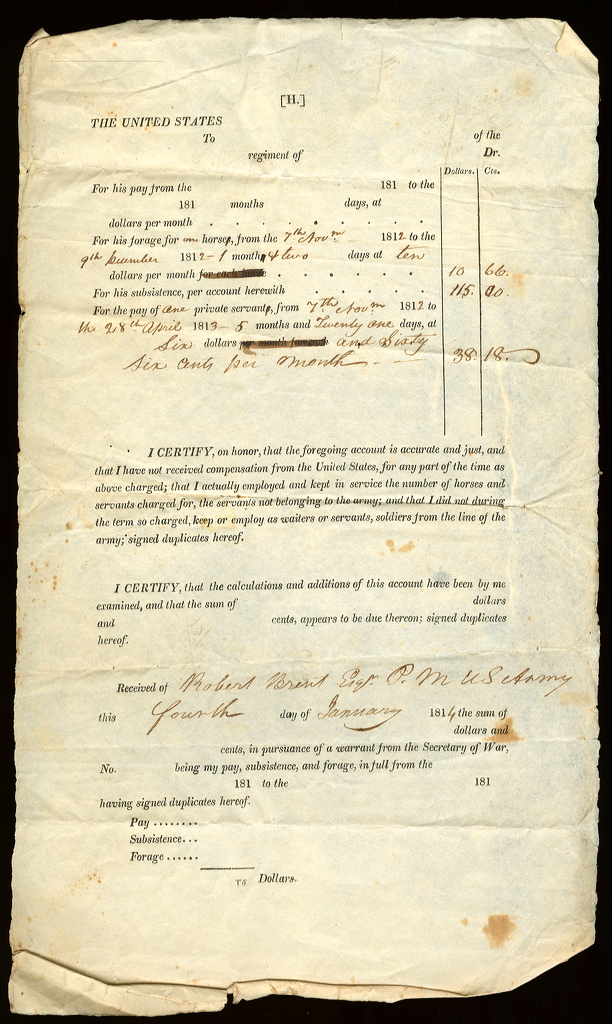 [H.]
THE UNITED STATES
To of the
regiment of Dr.
Dollars. Cts.
For his pay from the 181 to the
181 months days, at
dollars per month
For his forage for one horse, from the 7th Novm 1812 to the
9th December 1812 - 1 month, & two days at ten
dollars per month for each horse 10 66.
For his subsistence, per account herewith 115. 00.
For the pay of one private servant, from 7th Novm 1812 to
the 28th April 1813 - 5 months and Twenty one days, at
Six dollars per month forward and Sixty
Six cents per month - 38. 18.
I CERTIFY, on honor, that the foregoing account is accurate and just, and
that I have not received compensation from the United States, for any part of the time as
above charged; that I actually employed and kept in service the number of horses and
servants charged for, the servants not belonging to the army; and that I did not during
the term so charged, keep or employ as waiters or servants, soldiers from the line of the
army; signed duplicates hereof.
I CERTIFY, that the calculations and additions of this account have been by me
examined, and that the sum of dollars
and cents, appears to be due thereon; signed duplicates
hereof.
Received of Robert Brent Esqr. P. M US Army
this fourth day of January 1814 the sum of
dollars and
cents, in pursuance of a warrant from the Secretary of War,
No. being my pay, subsistence, and forage, in full from the
181 to the 181
having signed duplicates hereof.
Pay ........
Subsistence...
Forage ......
Dollars.